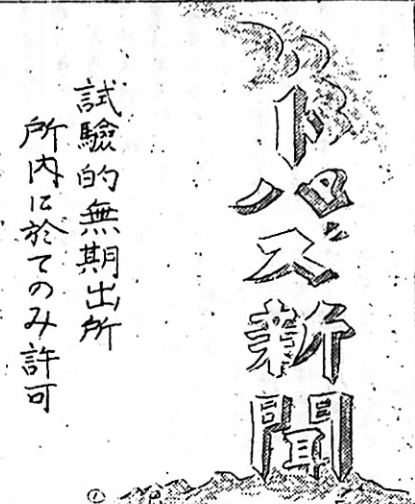 トパズ新聞
試驗的無期出所
所内に於てのみ許可